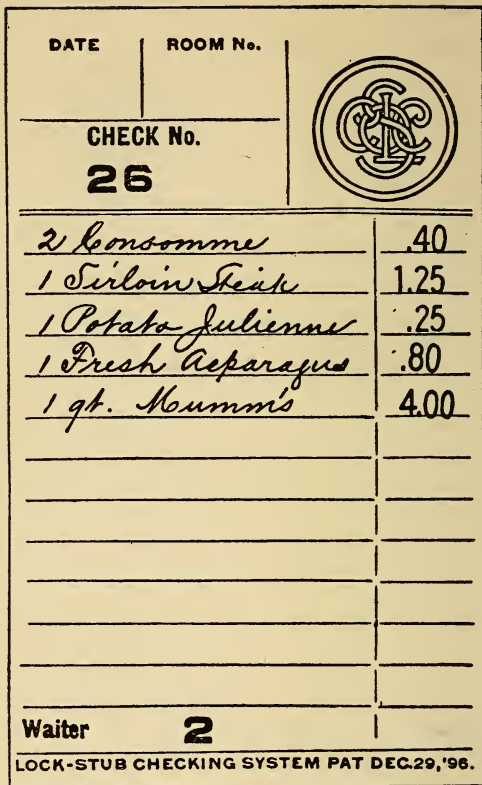 DATE ROOM No.
CHECK No.
26
2 Consomme .40
1 Sirloin Steak 1.25
1 Potato Julienne .25
1 Fresh Asparagus .80
1 qt. Mumm's 4.00
Waiter 2
LOCK-STUB CHECKING SYSTEM PAT DEC.29,'96.